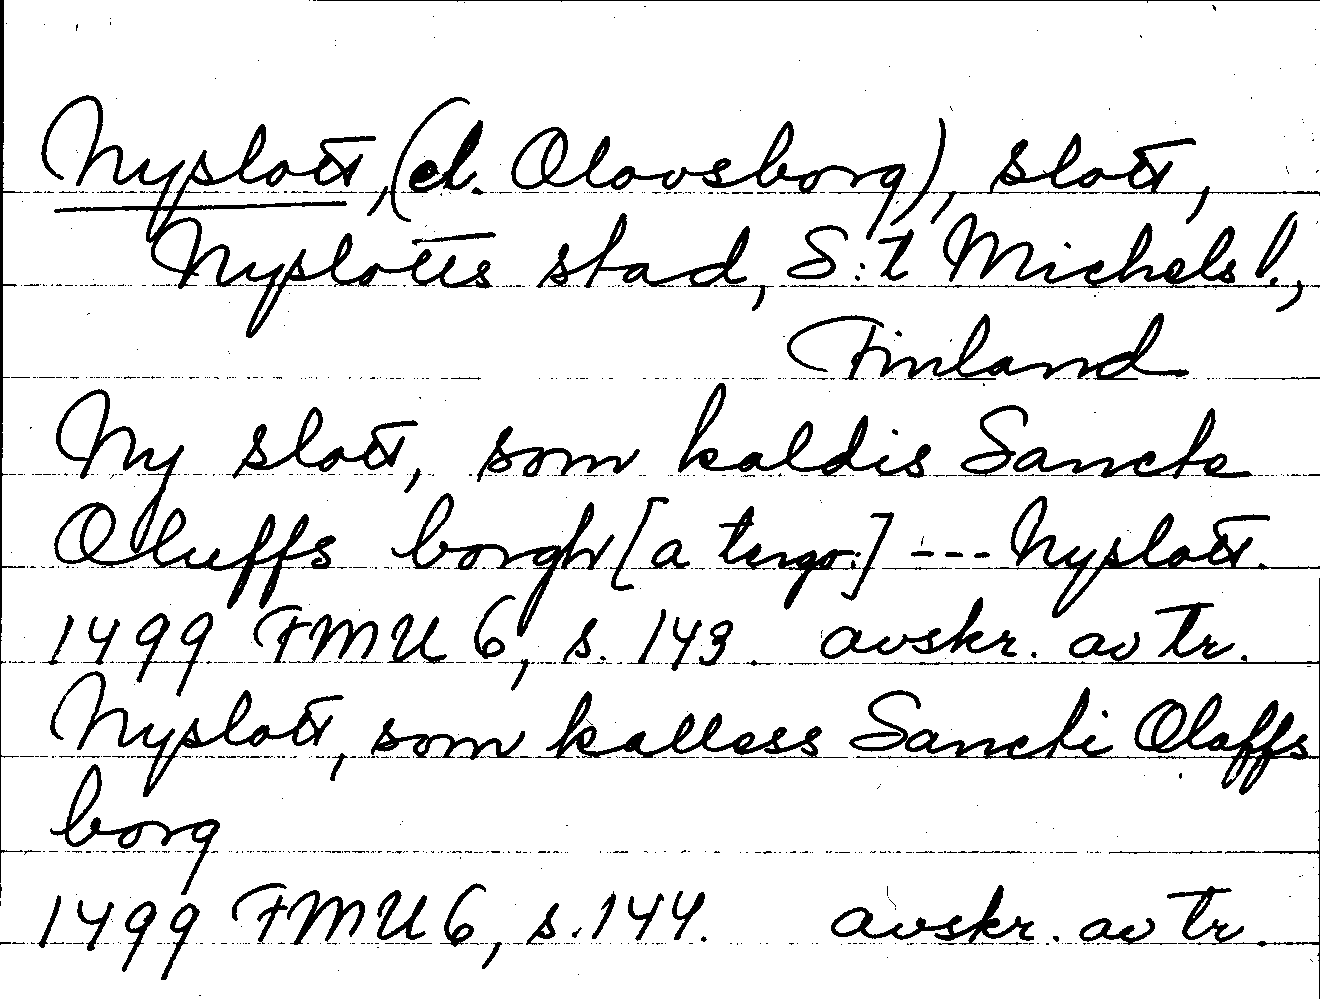 Nyslott, (el. Olovsborg), slott,
Nyslotts stad, S:t Michels l.,
Finland
Ny slott, som kaldis Sancte
Oluffs borgh [a tergo:] --- Nyslott.
1499 FMU 6, s. 143. avskr. av tr.
Nyslott, som kalless Sancti Olaffs
borg
1499 FMU 6, s. 144. avskr. av tr.